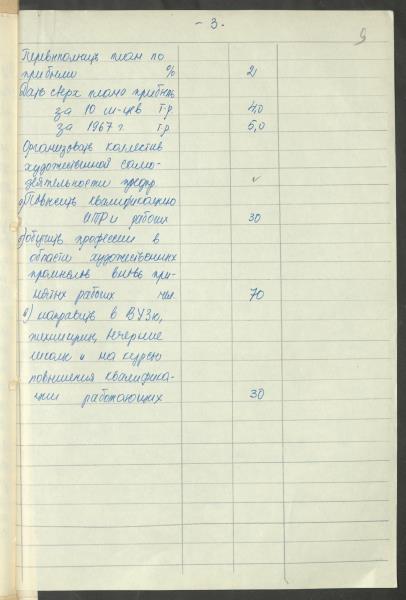 - 3 -
9
Перевыполнить план по
прибыли % 21
Дать сверх плана прибыль
за 10 м-цев т.р. 4,0
за 1967 г. т.р. 5,0
Организовать коллектив
художественной само-
деятельности предпр. ✓
Повысить квалификацию
ИТР и рабочих 30
обучить профессии в
области художественных
промыслов вновь при-
нятых рабочих чел. 70
в) направить в ВУЗы,
техникумы, вечерние
школы и на курсы
повышения квалифика-
ции работающих 30